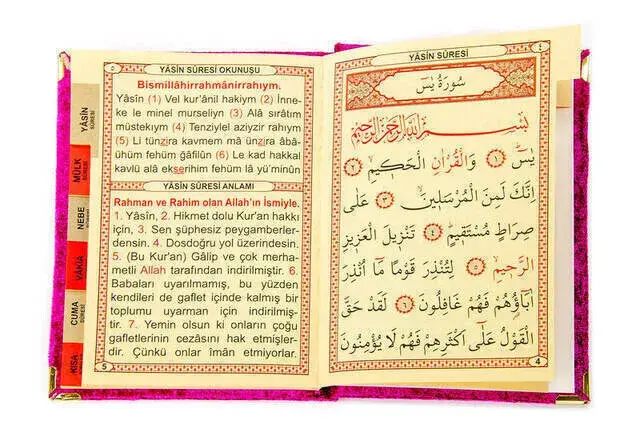 ٤
YÂSİN SÛRESİ
سُورَةُ يٰسٓ
بِسْمِ اللّٰهِ الرَّحْمٰنِ الرَّحِيمِ
يٰسٓ ﴿١﴾ وَالْقُرْاٰنِ الْحَكِيمِ ﴿٢﴾
اِنَّكَ لَمِنَ الْمُرْسَلِينَ ﴿٣﴾ عَلٰى
صِرَاطٍ مُسْتَقِيمٍ ﴿٤﴾ تَنْزِيلَ الْعَزِيزِ
الرَّحِيمِ ﴿٥﴾ لِتُنْذِرَ قَوْمًا مَٓا اُنْذِرَ
اٰبَٓاؤُهُمْ فَهُمْ غَافِلُونَ ﴿٦﴾ لَقَدْ حَقَّ
الْقَوْلُ عَلٰٓى اَكْثَرِهِمْ فَهُمْ لَا يُؤْمِنُونَ
4
٥
YÂSİN SÛRESİ OKUNUŞU
Bismillâhirrahmânirrahıym.
Yâsîn (1) Vel kur'ânil hakiym (2) İnne-
ke le minel murseliyn (3) Alâ sırâtım
müstekıym (4) Tenziylel aziyzir rahıym
(5) Li tünzira kavmem mâ ünzira âbâ-
ühüm fehüm ğâfilûn (6) Le kad hakkal
kavlü alâ ekserihim fehüm lâ yü'minûn
YÂSİN SÛRESİ ANLAMI
Rahman ve Rahim olan Allah'ın İsmiyle.
1. Yâsîn, 2. Hikmet dolu Kur'an hakkı
için, 3. Sen şüphesiz peygamberler-
densin. 4. Dosdoğru yol üzerindesin.
5. (Bu Kur'an) Gâlip ve çok merha-
metli Allah tarafından indirilmiştir. 6.
Babaları uyarılmamış, bu yüzden
kendileri de gaflet içinde kalmış bir
toplumu uyarman için indirilmiş-
tir. 7. Yemin olsun ki onların çoğu
gafletlerinin cezasını hak etmişler-
dir. Çünkü onlar îman etmiyorlar.
5
YÂSİN
SÛRESİ
MÜLK
SÛRESİ
NEBE
SÛRESİ
VÂKIA
SÛRESİ
CUMA
SÛRESİ
KISA